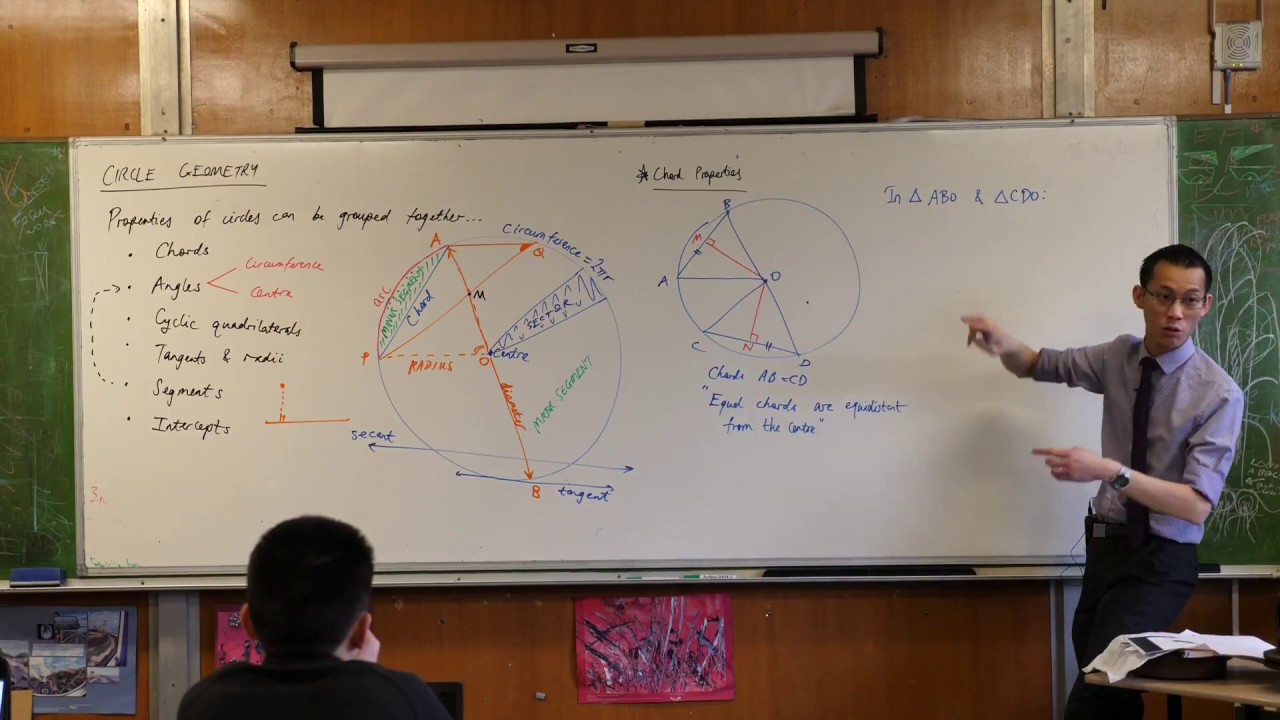 CIRCLE GEOMETRY
Properties of circles can be grouped together...
• Chords
• Angles
Circumference
Centre
• Cyclic quadrilaterals
• Tangents & radii
• Segments
• Intercepts
A
Q
Circumference = 2πr
arc
MINOR SEGMENT
Chord
M
SECTOR
P
RADIUS
O
Centre
diameter
MAJOR SEGMENT
secant
B
tangent
* Chord Properties
B
M
A
O
C
N
D
Chords AB = CD
"Equal chords are equidistant
from the centre"
In △ ABO & △CDO: